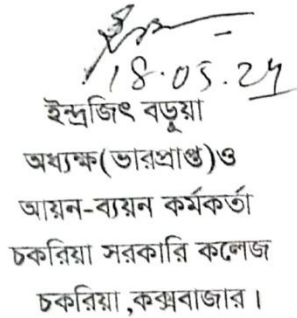 18.05.24
ইন্দ্রজিৎ বড়ুয়া
অধ্যক্ষ(ভারপ্রাপ্ত)ও
আয়ন-ব্যয়ন কর্মকর্তা
চকরিয়া সরকারি কলেজ
চকরিয়া ,কক্সবাজার।